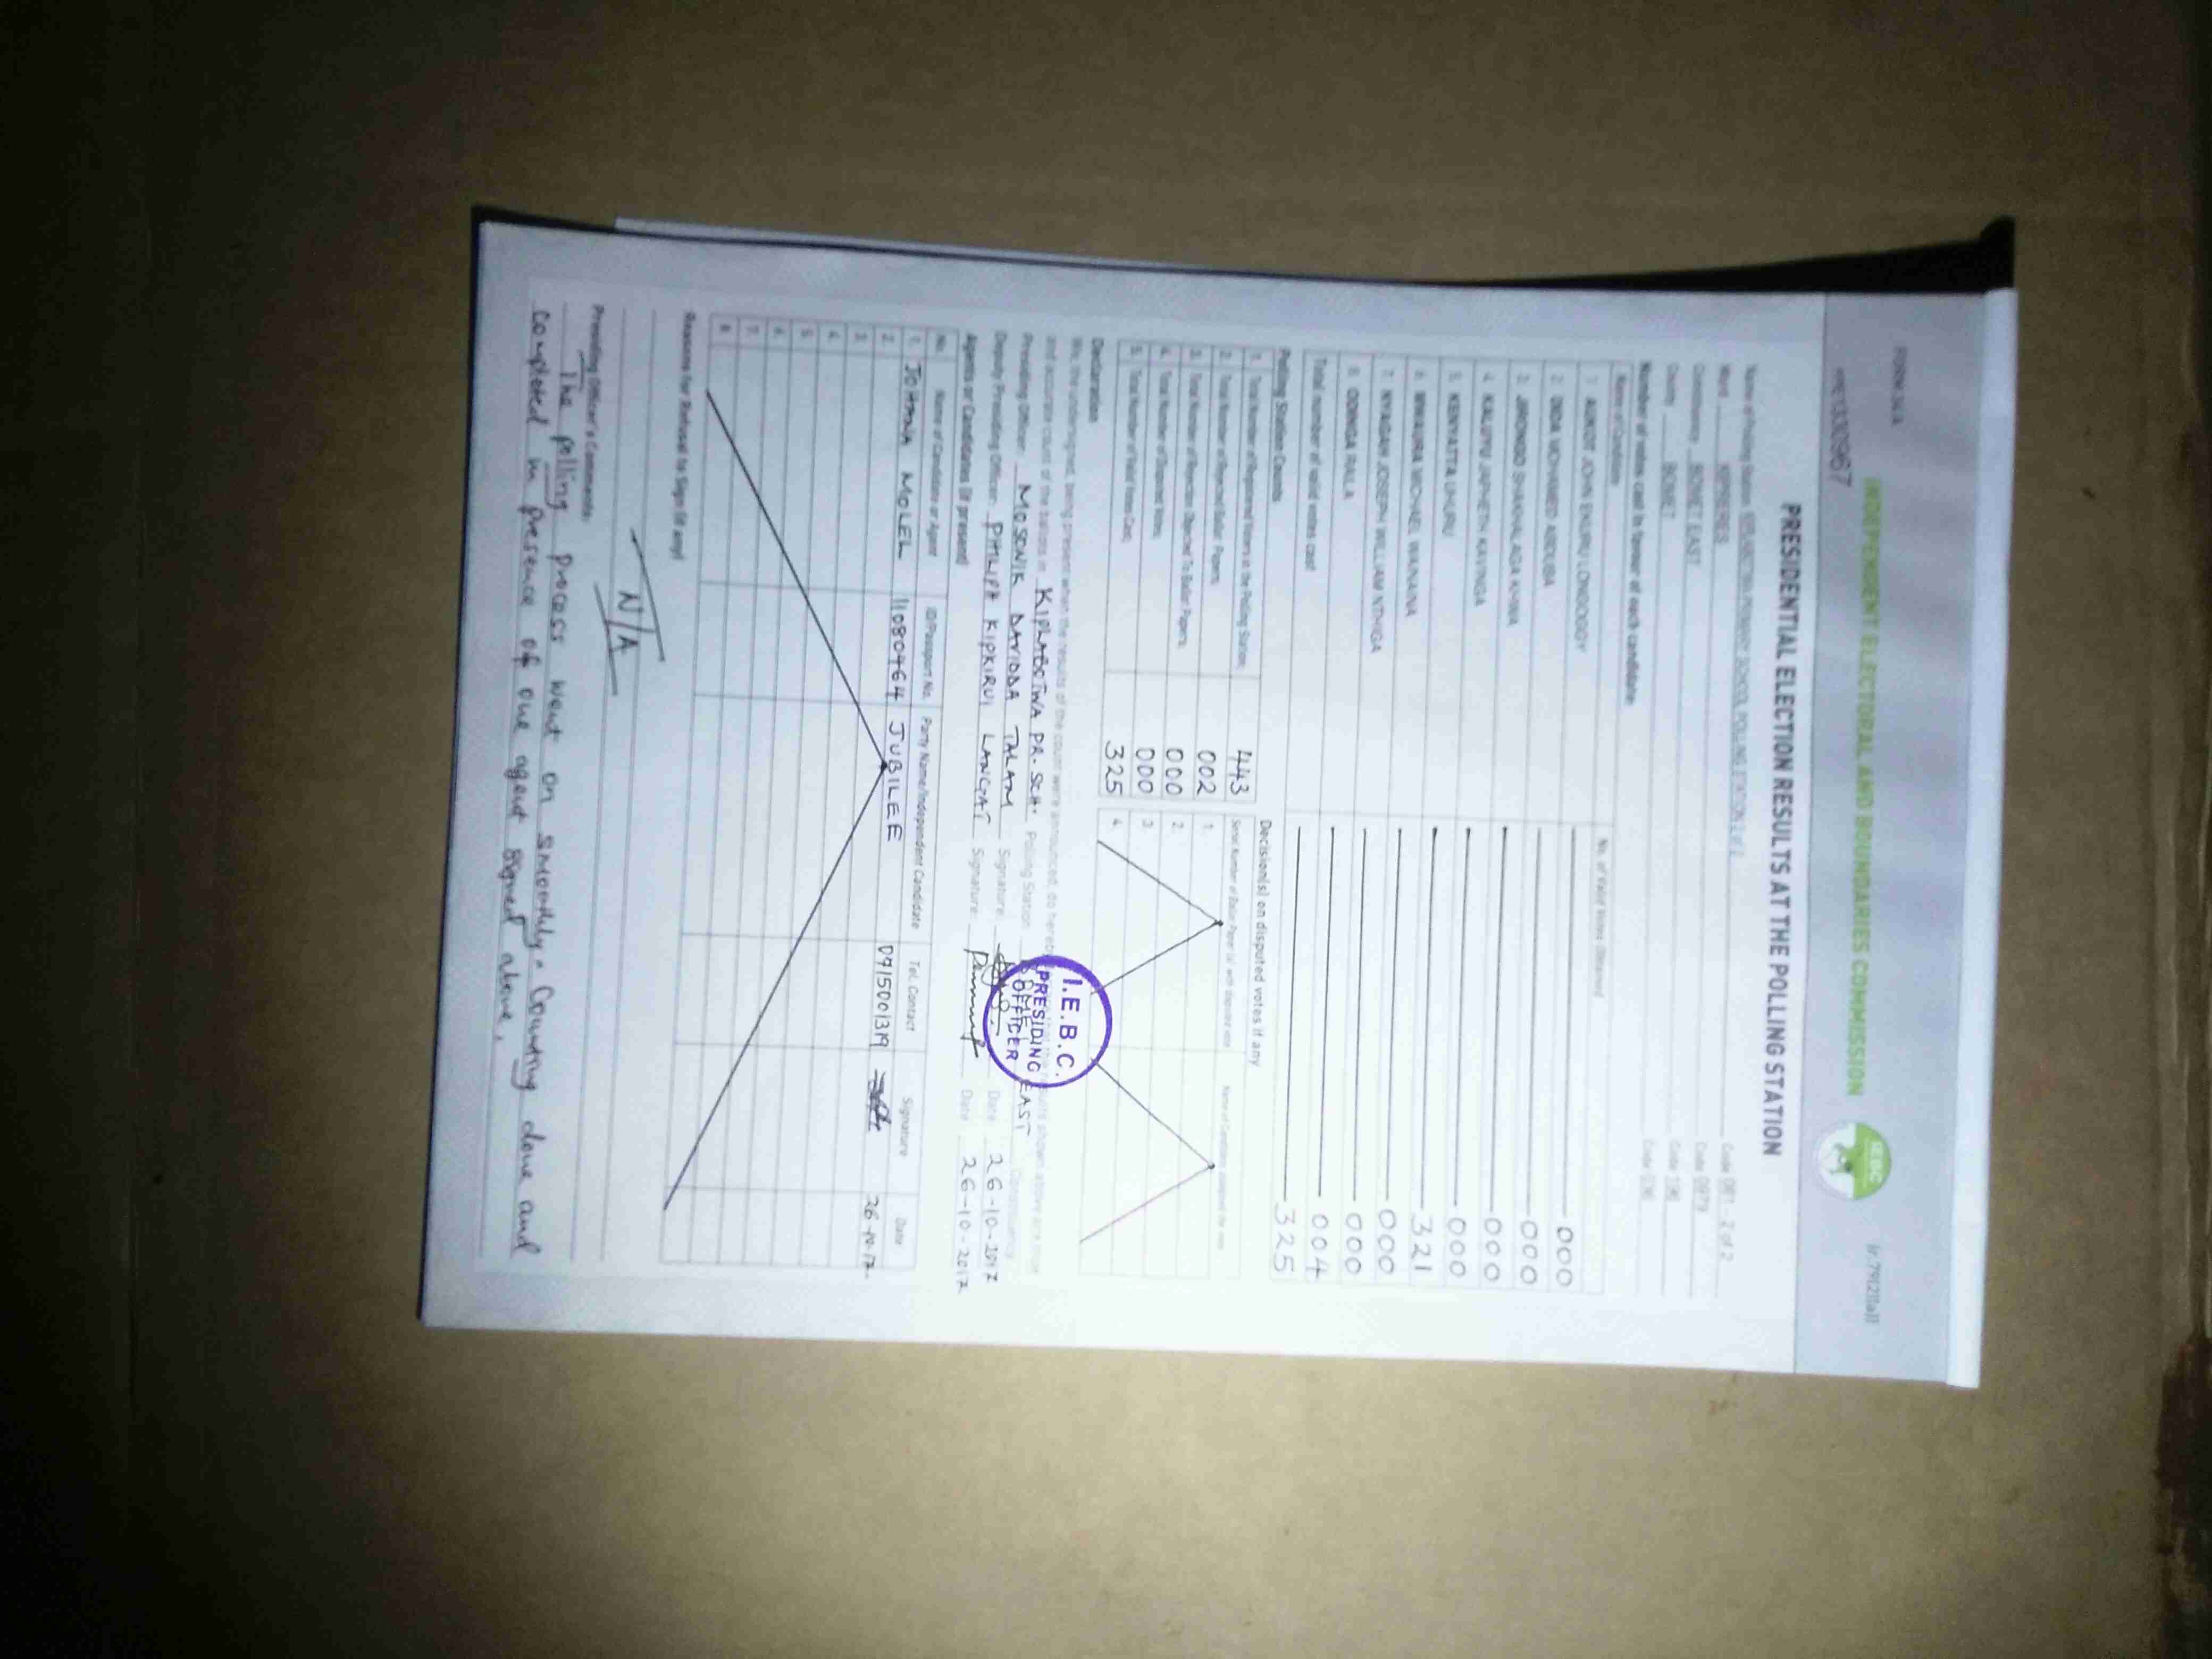 FORM 34A
INDEPENDENT ELECTORAL AND BOUNDARIES COMMISSION
IEBC
PRESIDENTIAL ELECTION RESULTS AT THE POLLING STATION
Name of Polling Station
Ward
Constituency BOMET EAST Code
County BOMET Code
Number of votes cast in favour of each candidate:
Name of Candidate No. of Valid Votes Obtained
1. AUKOT JOHN EKURU LONGOGGY 000
2. DIDA MOHAMED ABDUBA 000
3. JIRONGO SHAKHALAGA KHWA 000
4. KALUYU JAPHETH KAVINGA 000
5. KENYATTA UHURU 321
6. MWAURA MICHAEL WAINAINA 000
7. NYAGAH JOSEPH WILLIAM NTHIGA 000
8. ODINGA RAILA 004
Total number of valid votes cast 325
Polling Station Counts
1. Total Number of Registered Voters in the Polling Station; 443
2. Total Number of Rejected Ballot Papers; 002
3. Total Number of Rejection Objected To Ballot Papers; 000
4. Total Number of Disputed Votes; 000
5. Total Number of Valid Votes Cast; 325
Decision(s) on disputed votes if any
1.
2.
3.
4.
Declaration
We, the undersigned, being present when the results of the count were announced, do hereby
and accurate count of the ballots in KIPLABOTWA PR. SCH. Polling Station BOMET EAST Constituency
Presiding Officer MOSONIK DAVIDDA TALAM Signature: Date 26-10-2017
Deputy Presiding Officer: PHILIPH KIPKIRUI LANGAT Signature: Date 26-10-2017
I.E.B.C.
PRESIDING
OFFICER
Agents or Candidates (if present)
No. Name of Candidate or Agent ID/Passport No. Party Name/Independent Candidate Tel. Contact Signature Date
1. JOHANA MOLEL 11080464 JUBILEE 0715001319 26-10-17.
2.
3.
4.
5.
6.
7.
8.
Reasons for Refusal to Sign (if any)
N/A
Presiding Officer's Comments:
The polling process went on smoothly. Counting done and
completed in presence of one agent signed above.